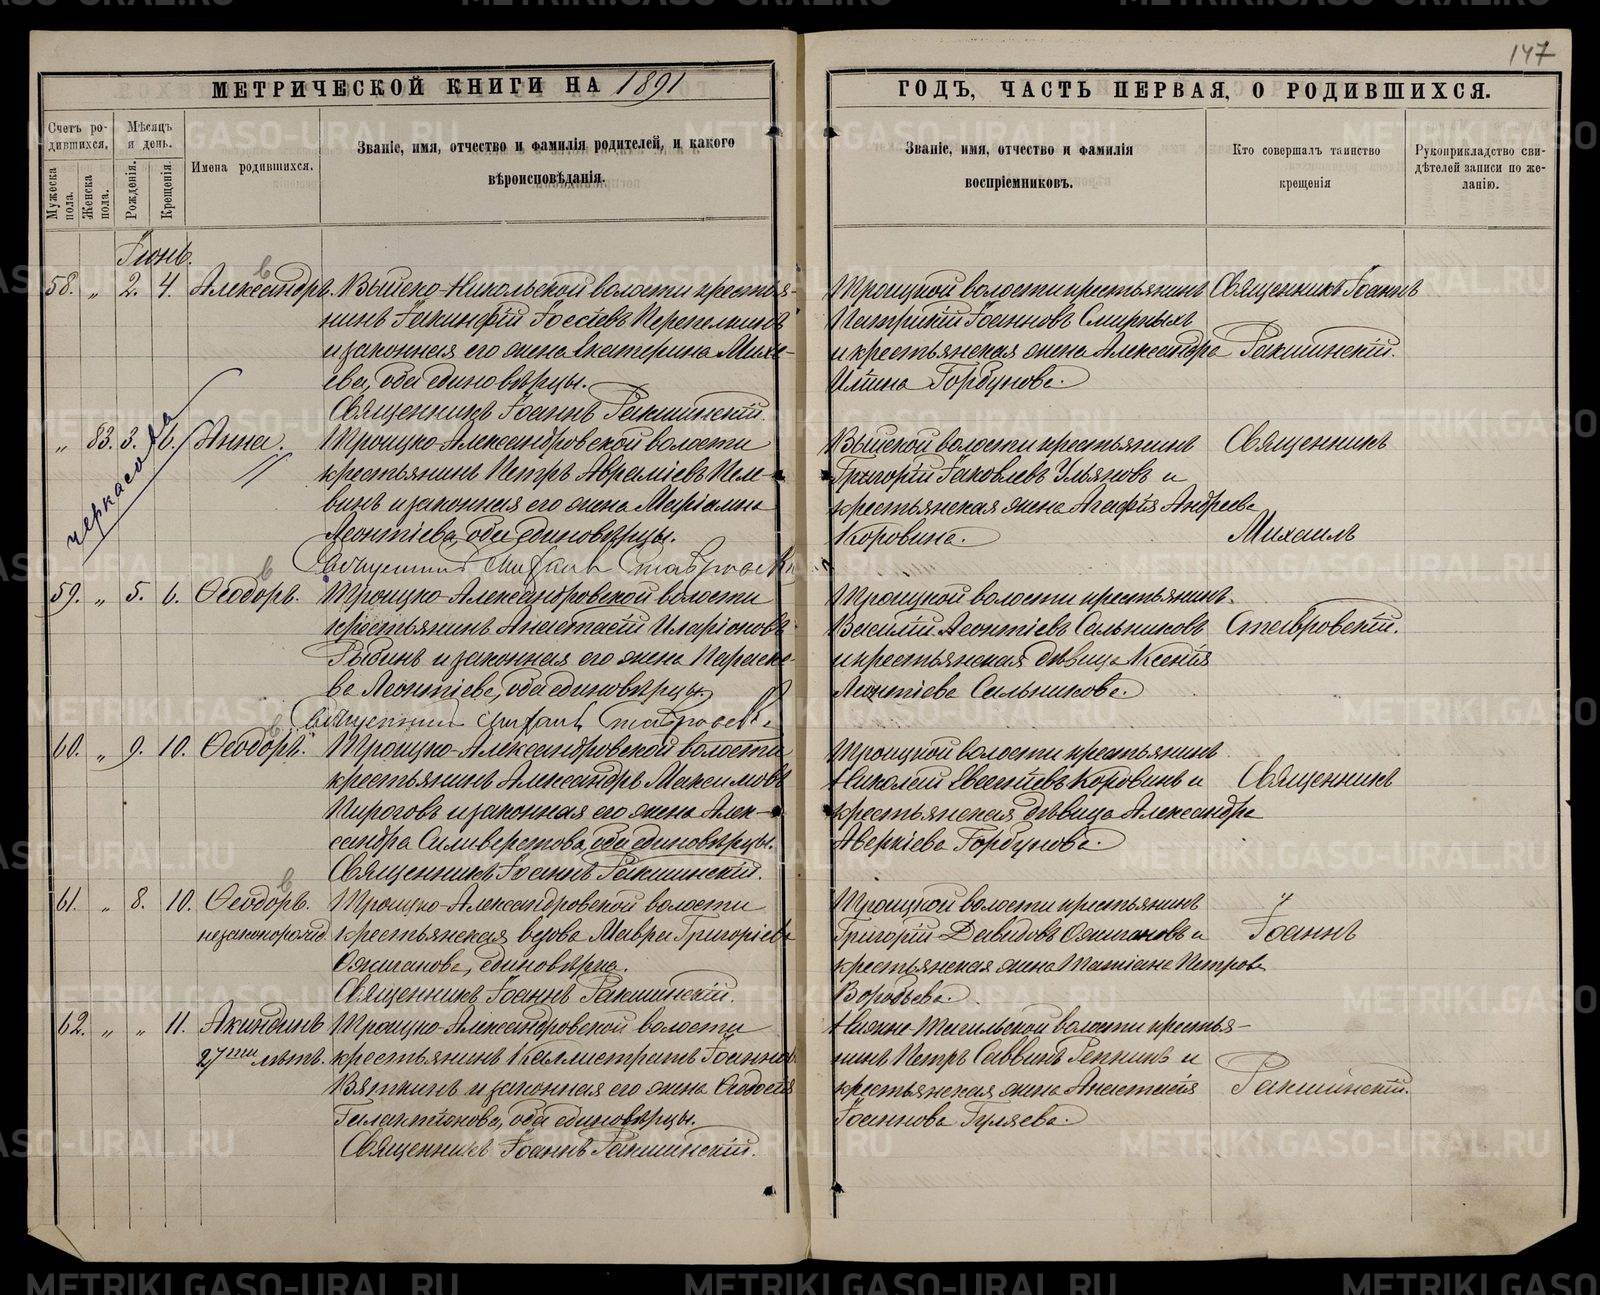 147
МЕТРИЧЕСКОЙ КНИГИ НА 1891
ГОДЪ, ЧАСТЬ ПЕРВАЯ, О РОДИВШИХСЯ.
Счетъ ро-
дившихся.
Мужеска пола.
Женска пола.
Мѣсяцъ
и день.
Рожденія.
Крещенія.
Имена родившихся.
Званіе, имя, отчество и фамилія родителей, и какого
вѣроисповѣданія.
Званіе, имя, отчество и фамилія
воспріемниковъ.
Кто совершалъ таинство
крещенія
Рукоприкладство сви-
дѣтелей записи по же-
ланію.
Іюнь.
58. „ 2. 4. Александръ. Выйско-Никольской волости крестья-
нинъ Іакинфій Іосіевъ Перепелкинъ
и законная его жена Екатерина Михе-
ева, оба единовѣрцы.
Священникъ Іоаннъ Ракшинскій.
Троицкой волости крестьянинъ
Патрикій Іоанновъ Смирныхъ
и крестьянская жена Александра
Ильина Горбунова.
Священникъ Іоаннъ
Ракшинскій.
черкасова
„ 83. 3. 6. Анна. Троицко-Александровской волости
крестьянинъ Петръ Авраміевъ Пель-
винъ и законная его жена Маріамна
Леонтіева, оба единовѣрцы.
Священникъ Михаилъ Ставровскій
Выйской волости крестьянинъ
Григорій Іаковлевъ Ульяновъ и
крестьянская жена Агафія Андреева
Коровина.
Священникъ
Михаилъ
59. „ 5. 6. Ѳеодоръ. Троицко-Александровской волости
крестьянинъ Анастасій Иларіоновъ
Рыбинъ и законная его жена Параске-
ва Леонтіева, оба единовѣрцы.
Священникъ Михаилъ Ставровскій
Троицкой волости крестьянинъ
Василій Леонтіевъ Сальниковъ
и крестьянская дѣвица Ксенія
Леонтіева Сальникова.
Ставровскій.
60. „ 9. 10. Ѳеодоръ. Троицко-Александровской волости
крестьянинъ Александръ Максимовъ
Пироговъ и законная его жена Алек-
сандра Силиверстова, оба единовѣрцы.
Священникъ Іоаннъ Ракшинскій.
Троицкой волости крестьянинъ
Николай Евсѣевъ Коровинъ и
крестьянская дѣвица Александра
Аверкіева Горбунова.
Священникъ
61. „ 8. 10. Ѳеодоръ. Троицко-Александровской волости
незаконорожд. крестьянская вдова Мавра Григоріева
Ожиганова, единовѣрка.
Священникъ Іоаннъ Ракшинскій.
Троицкой волости крестьянинъ
Григорій Давидовъ Ожигановъ и
крестьянская жена Татіана Петрова
Воробьева.
Іоаннъ
62. „ „ 11. Акиндинъ Троицко-Александровской волости
27ми лѣтъ. крестьянинъ Каллистратъ Іоанновъ
Вяткинъ и законная его жена Ѳеодосія
Галактіонова, оба единовѣрцы.
Священникъ Іоаннъ Ракшинскій.
Нижне-Тагильской волости крестья-
нинъ Петръ Саввинъ Репнинъ и
крестьянская жена Анастасія
Іоаннова Гуляева.
Ракшинскій.
METRIKI.GASO-URAL.RU